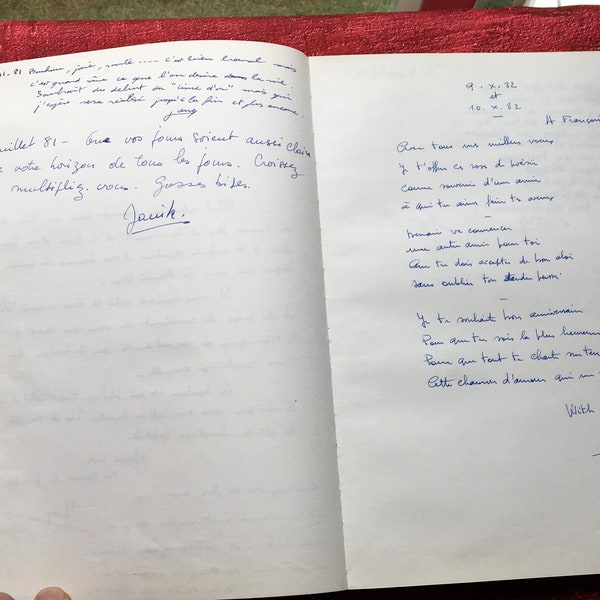 .81 Bonheur, joie, santé .... c'est bien banal mais
c'est quand même ce que l'on désire dans la vie.
Souhait du début du "livre d'or" mais qui
j'espère sera réalisé jusqu'à la fin et plus encore.
juillet 81 - Que vos jours soient aussi clairs
votre horizon de tous les jours. Croissez
multipliez. vous. Grosses bises.
Janik.
9. X. 82
et
10. X. 82
A François
Avec tous mes meilleurs voeux
Je t'offre ces vers de poésie
comme souvenir d'un amie
à qui tu aimes faire tes aveux
Demain va commencer
une autre année pour toi
Que tu dois accepter de bon aloi
sans oublier ton tendre passé
Je te souhaite bon anniversaire
Pour que tu sois la plus heureuse
Pour que tout te chante sur ter
Cette chanson d'amour qui
With